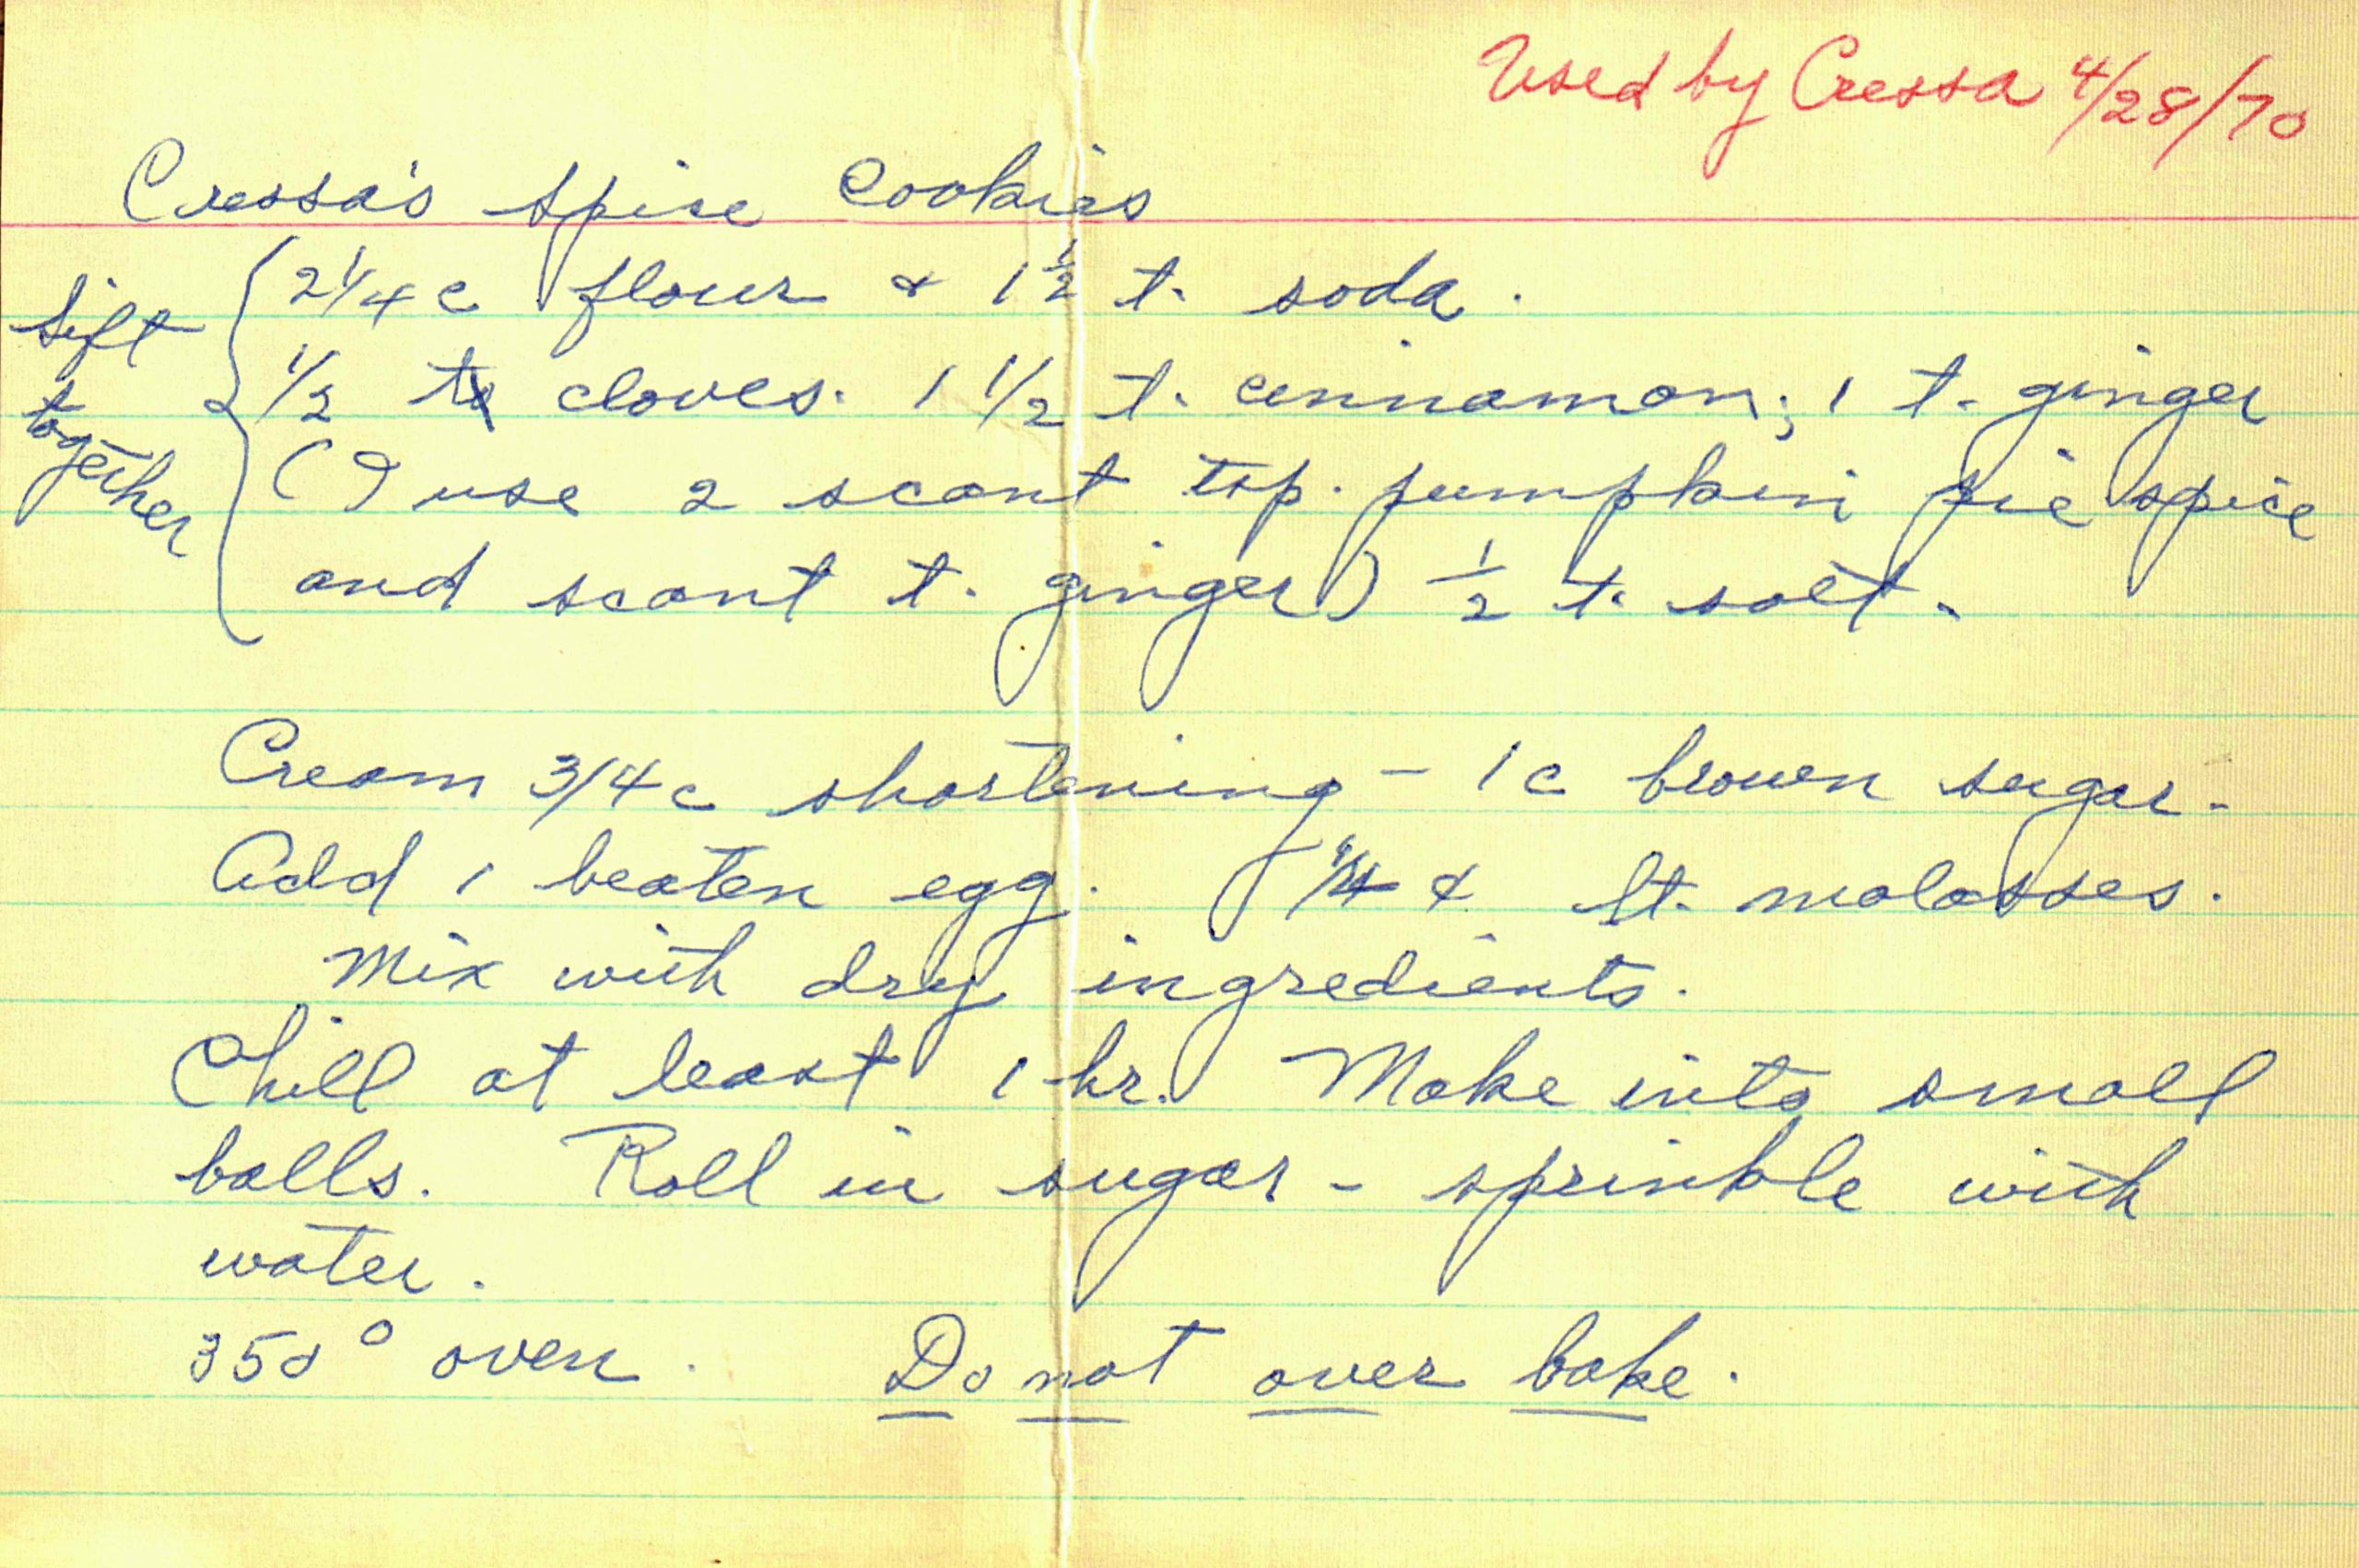 Used by Cressa 4/28/70
Cressa's Spice Cookies
Sift together
2 1/4 c flour & 1 1/2 t. soda.
1/2 t cloves. 1 1/2 t. cinnamon; 1 t. ginger
(I use 2 scant tsp. pumpkin pie spice
and scant t. ginger) 1/2 t. salt.
Cream 3/4 c shortening - 1 c brown sugar.
Add 1 beaten egg. 1/4 c lt. molasses.
Mix with dry ingredients.
Chill at least 1 hr. Make into small
balls. Roll in sugar - sprinkle with
water.
350° oven. Do not over bake.